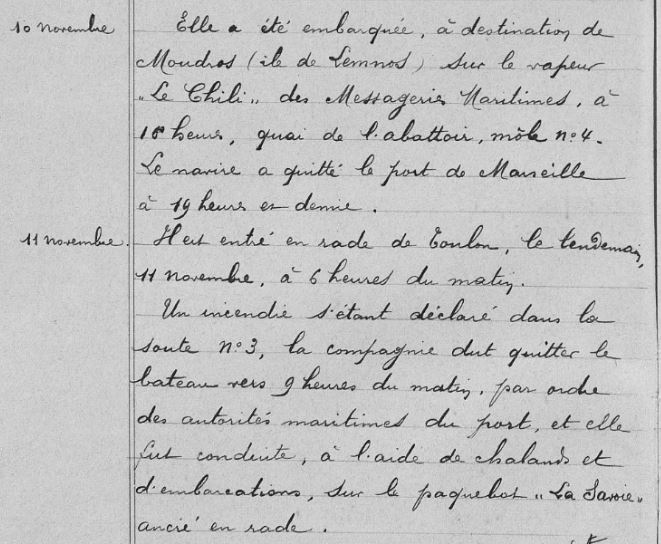 10 novembre Elle a été embarquée, à destination de
Moudros (île de Lemnos) sur le vapeur
"Le Chili" des Messageries Maritimes, à
18 heures, quai de l'abattoir, môle n°4.
Le navire a quitté le port de Marseille
à 19 heures et demie.
11 novembre. Il est entré en rade de Toulon, le lendemain,
11 novembre, à 6 heures du matin.
Un incendie s'étant déclaré dans la
soute n°3, la compagnie dut quitter le
bateau vers 9 heures du matin, par ordre
des autorités maritimes du port, et elle
fut conduite, à l'aide de chalands et
d'embarcations, sur le paquebot "La Savoie"
ancré en rade.